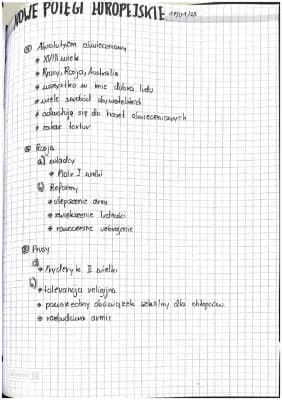 NOWE POTĘGI EUROPEJSKIE
① Absolutyzm oświeceniowy
* XVIII wiek
* Prusy, Rosja, Australia
* wszystko w imię dobra ludu
* wiele swobód obywatelskich
* odwołują się do haseł oświeceniowych
* zakaz tortur
② Rosja
a) władcy
* Piotr I wielki
b) Reformy
* ulepszenie armi
* zwiększenie ludności
* nowoczesne uzbrojenie
③ Prusy
a)
* Fryderyk II wielki
b)
* tolerancja religijna
* powszechny obowiązek szkolny dla chłopców
* rozbudowa armii